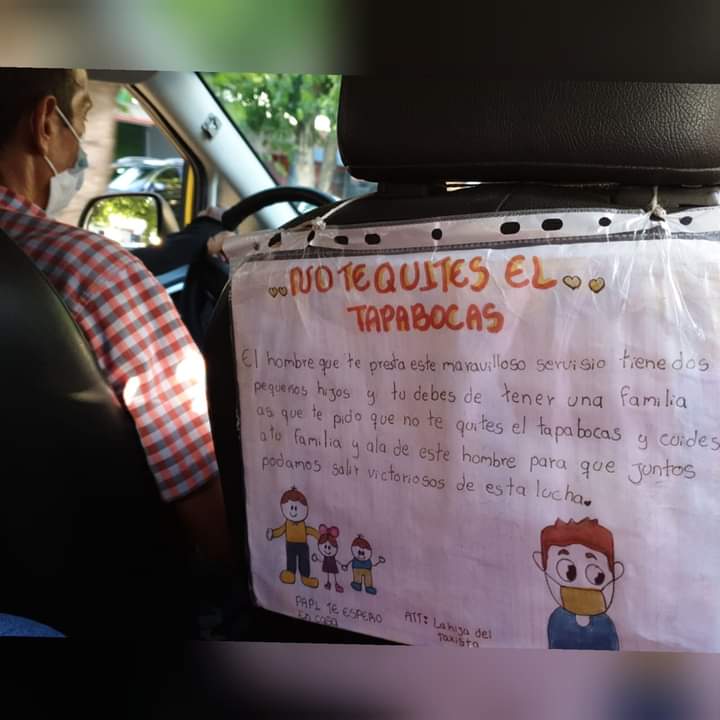 NO TE QUITES EL
TAPABOCAS
El hombre que te presta este maravilloso servisio tiene dos
pequeños hijos y tu debes de tener una familia
asi que te pido que no te quites el tapabocas y cuides
a tu familia y ala de este hombre para que juntos
podamos salir victoriosos de esta lucha.
PAPI TE ESPERO
EN CASA
ATT: La hija del
taxista